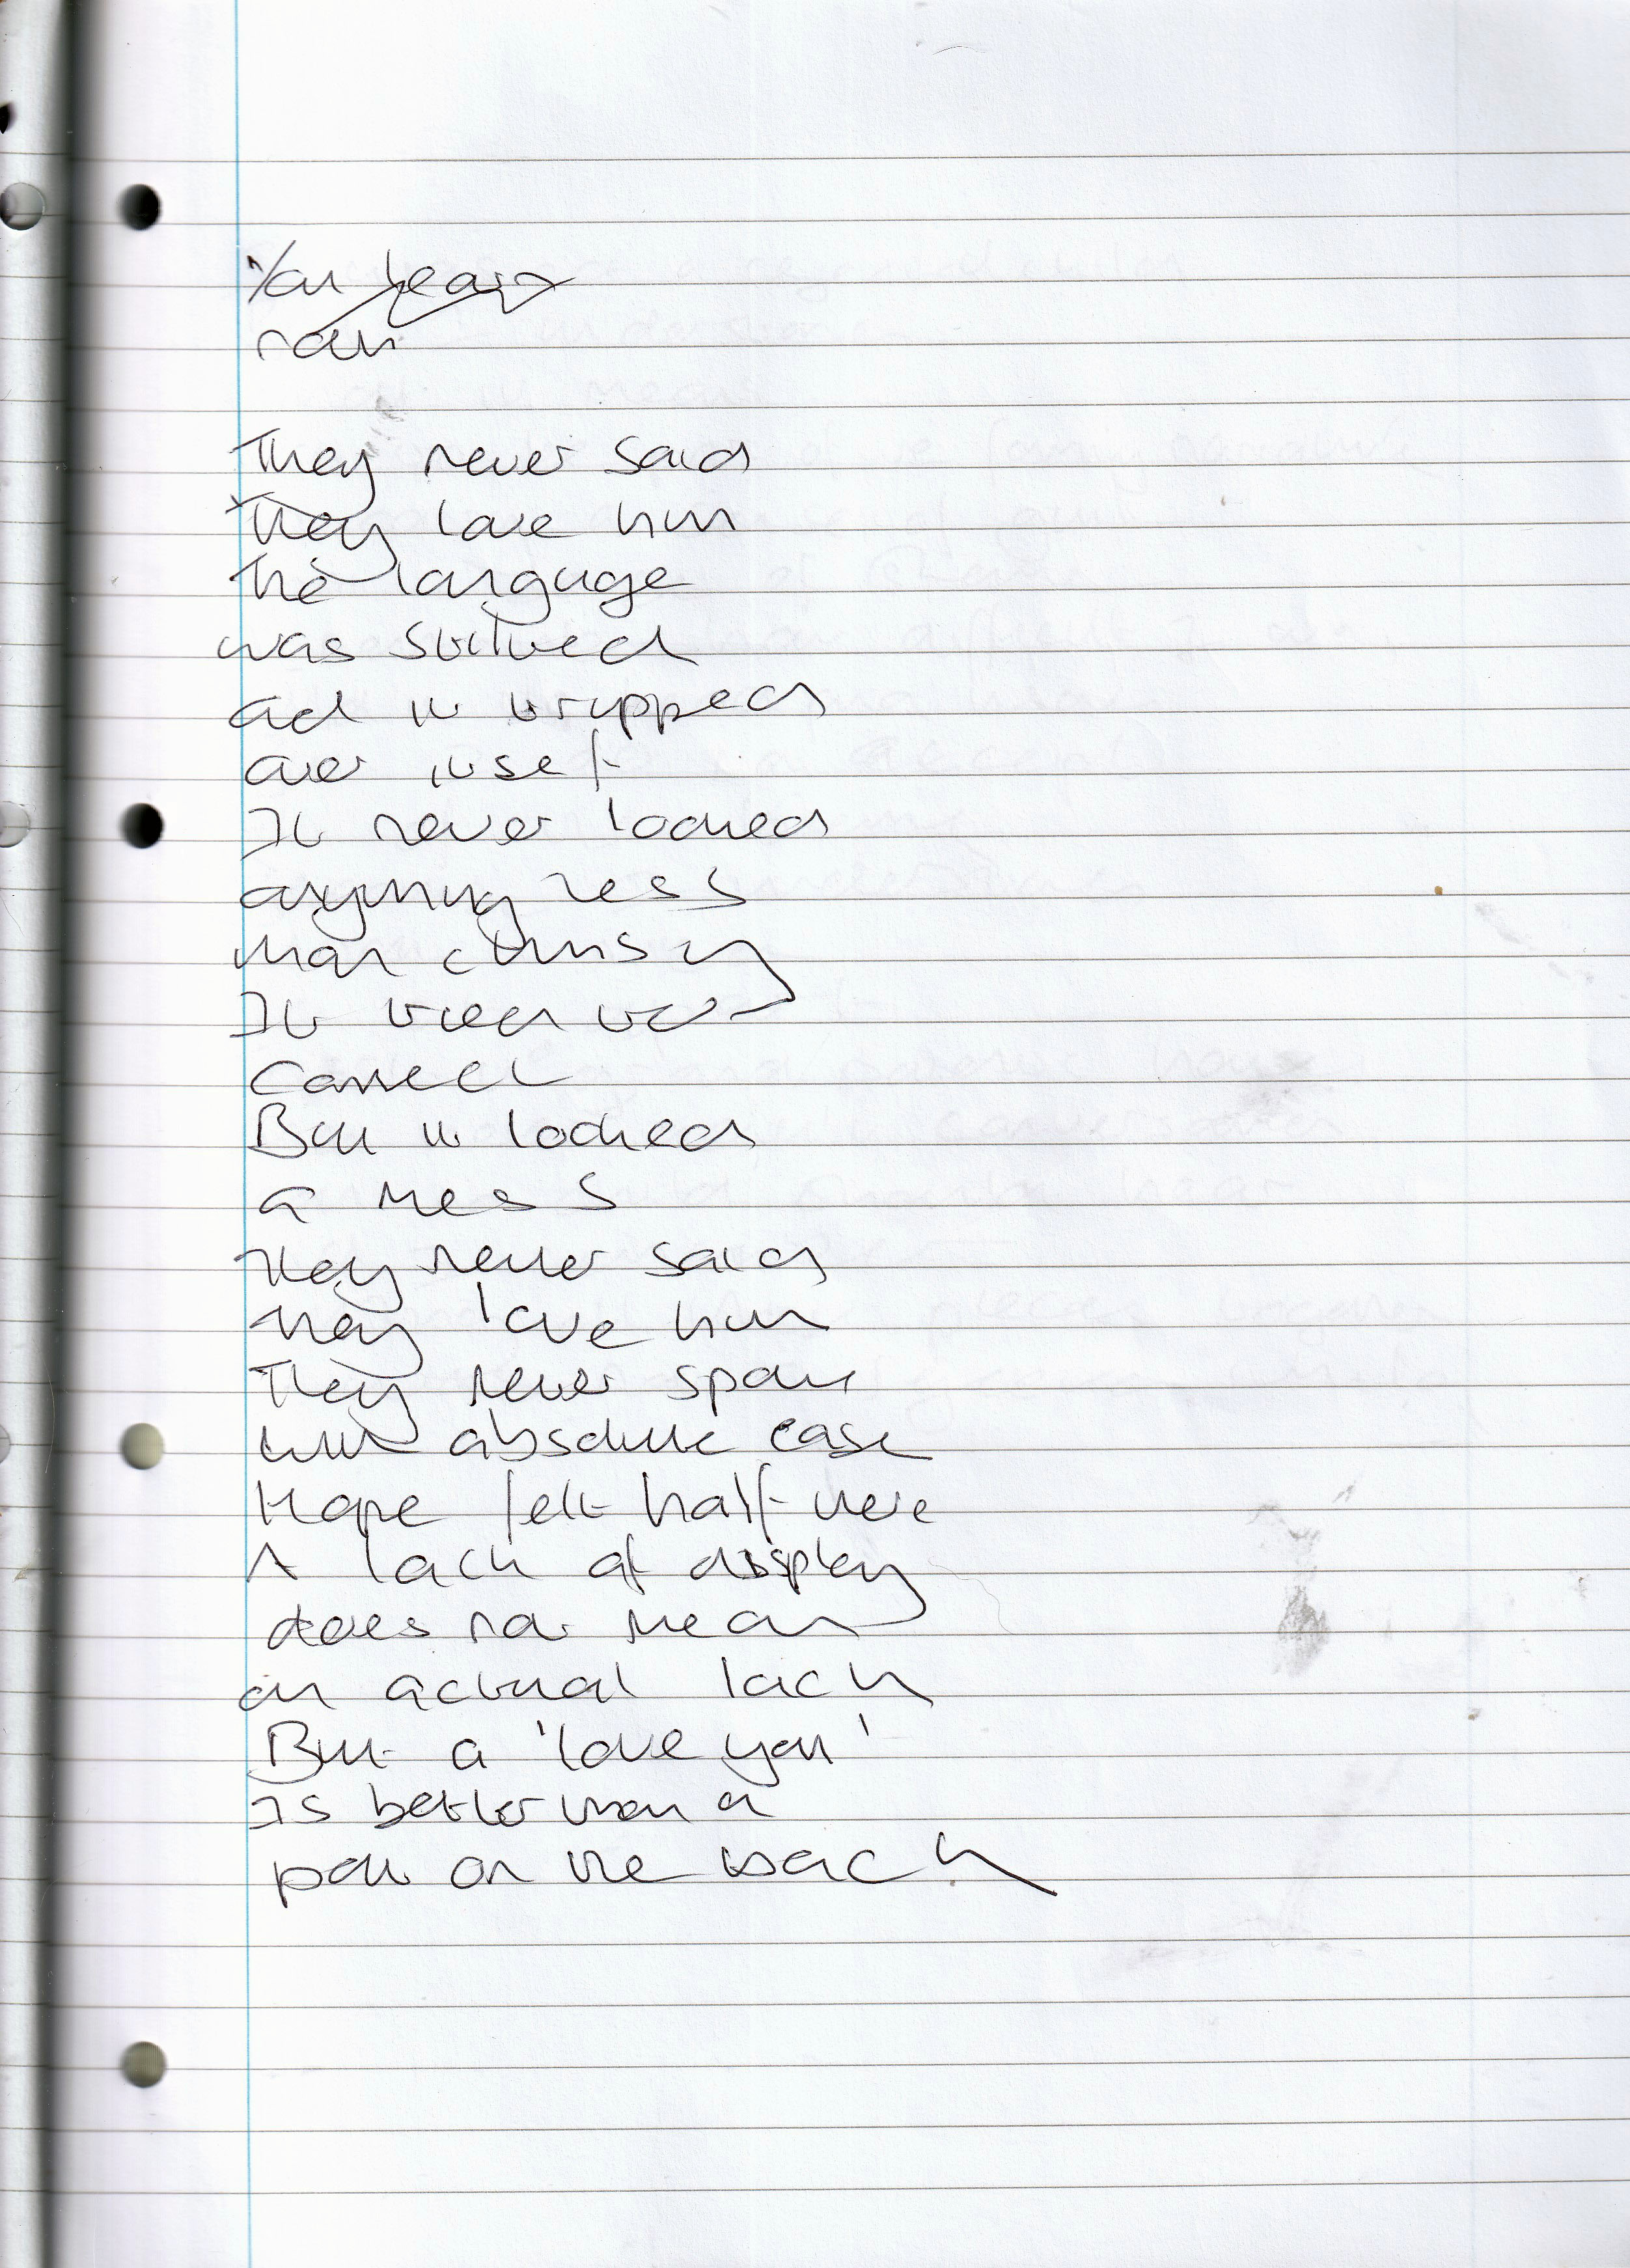 You learn
now
They never said
They love him
The languge
was stilted
and it tripped
over itself
It never looked
anything less
than clumsy
It tried to
connect
But it looked
a mess
They never said
they love him
They never spoke
with absolute ease
Hope felt half there
A lack of display
does not mean
an actual lack
But a 'love you'
Is better than a
pat on the back